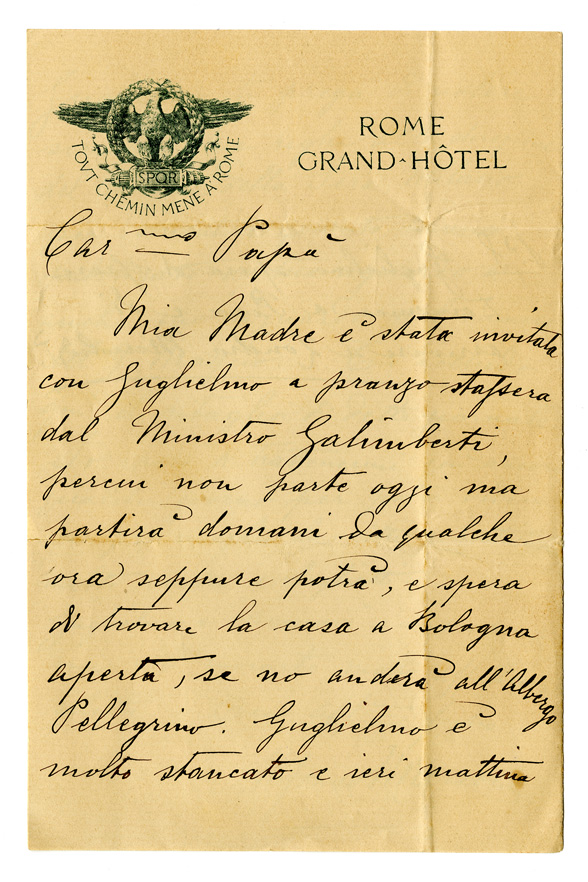 ROME
GRAND-HÔTEL
SPQR
TOVT CHEMIN MENE A ROME
Car mo Papà
Mia Madre è stata invitata
con Guglielmo a pranzo stassera
dal Ministro Galimberti,
percui non parte oggi ma
partirà domani da qualche
ora seppure potrà, e spera
di trovare la casa a Bologna
aperta, se no anderà all'Albergo
Pellegrino. Guglielmo è
molto stancato e ieri mattina